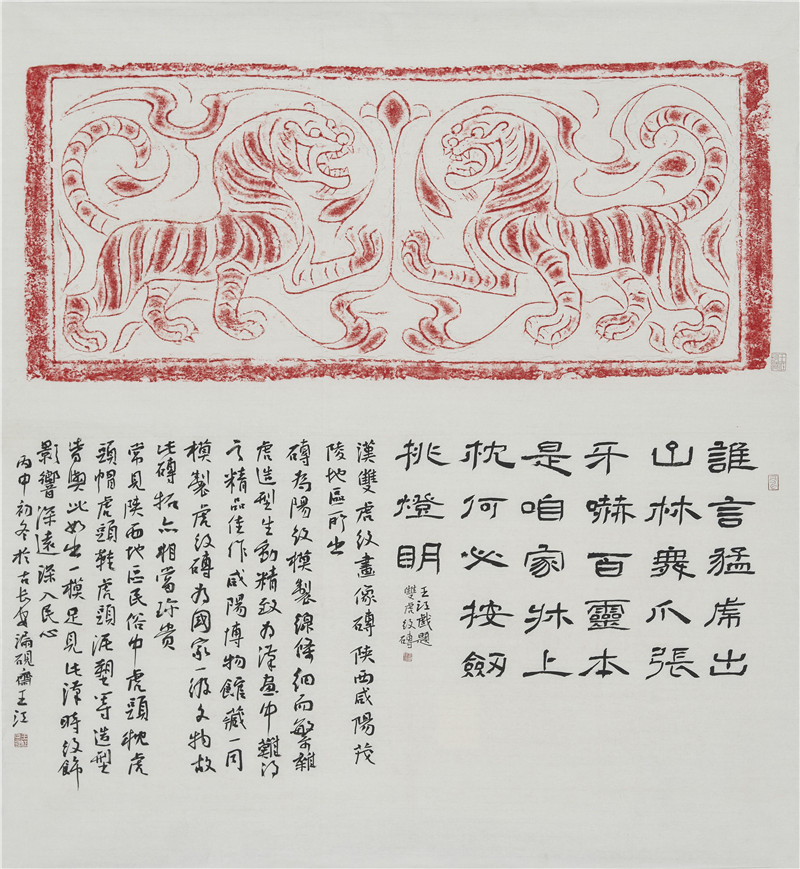 誰言猛虎出
山林舞爪張
牙嚇百靈本
是咱家牀上
枕何必按劔
挑燈明
王江戲題
雙虎紋磚
漢雙虎紋畫像磚陝西咸陽茂
陵地區所出
磚為陽紋模製線條細而繁雜
虎造型生動精致為漢畫中難得
之精品佳作咸陽博物館藏一同
模製虎紋磚為國家一級文物故
此磚拓亦相當珍貴
常見陝西地區民俗中虎頭枕虎
頭帽虎頭鞋虎頭泥塑等造型
皆與此如出一模足見此漢時紋飾
影響深遠深入民心
丙申初冬於古長安滿硯齋王江